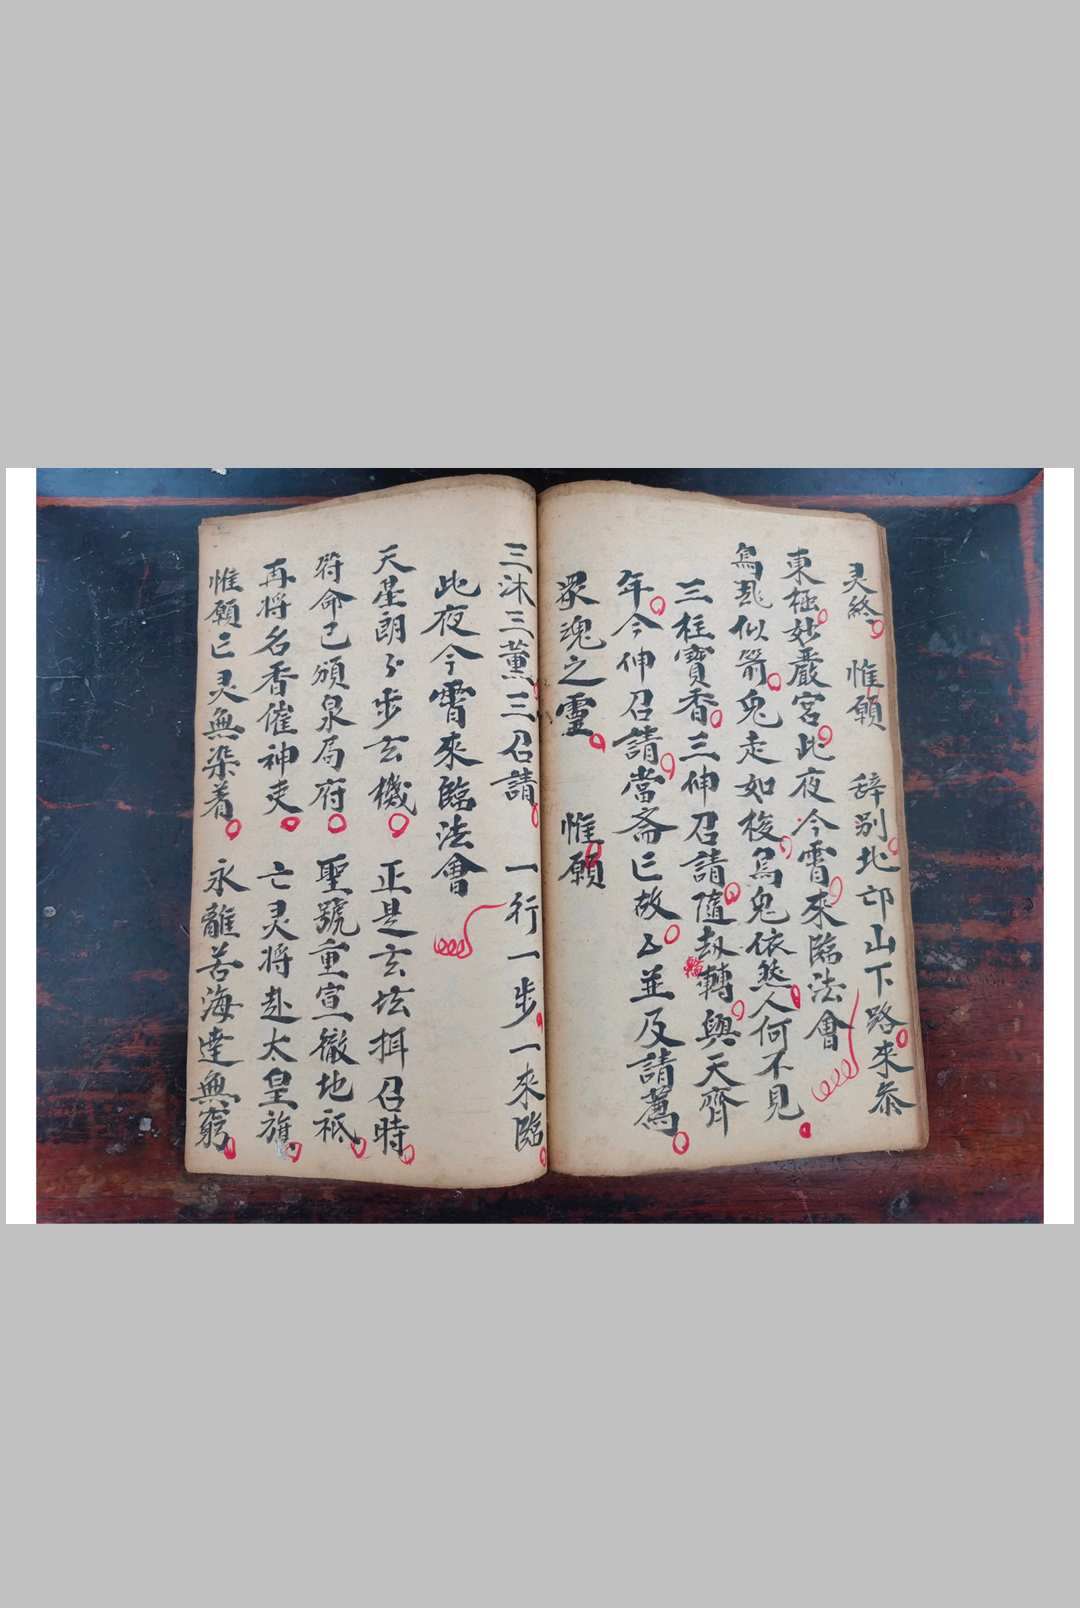 灵終 惟願 辞别北邙山下路來参
東極妙嚴宮此夜今霄來臨法會
烏飛似箭兎走如梭烏兎依然人何不見
三柱寶香三伸召請隨劫轉與天齊
年今伸召請當斋亡故㐅並及請薦
衆魂之靈 惟願
三沐三薰三召請 一行一步一來臨
此夜今霄來臨法會
天星朗朗步玄機 正是玄坛揖召時
符命已頒泉局府 聖號重宣徹地祇
再將名香催神吏 亡灵將赴太皇旗
惟願亡灵無染着 永離苦海達無窮